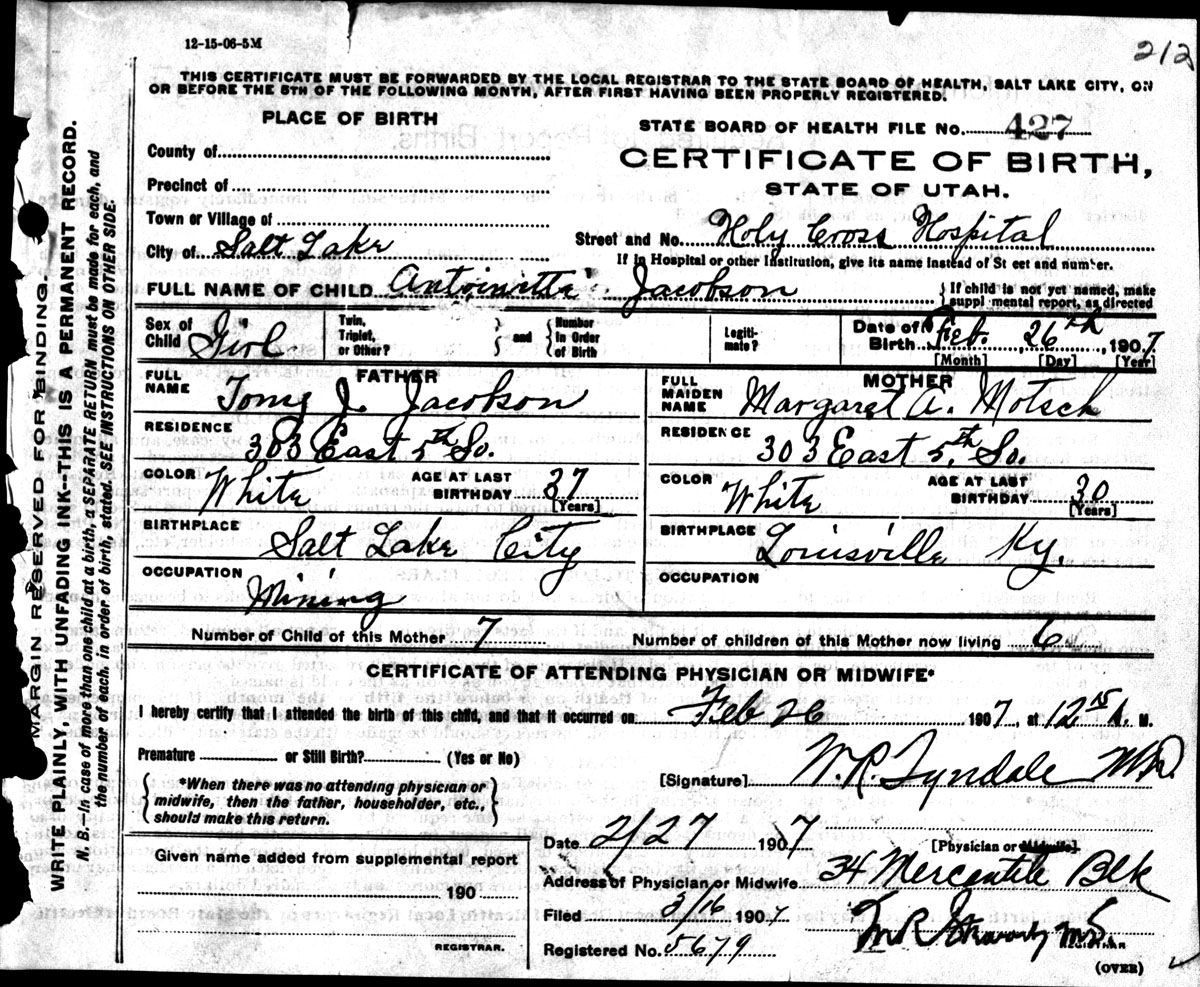 12-15-06-5M
212
THIS CERTIFICATE MUST BE FORWARDED BY THE LOCAL REGISTRAR TO THE STATE BOARD OF HEALTH, SALT LAKE CITY, ON
OR BEFORE THE 5TH OF THE FOLLOWING MONTH, AFTER FIRST HAVING BEEN PROPERLY REGISTERED.
PLACE OF BIRTH
STATE BOARD OF HEALTH FILE NO. 427
County of
CERTIFICATE OF BIRTH,
Precinct of
STATE OF UTAH.
Town or Village of
City of Salt Lake
Street and No. Holy Cross Hospital
If in Hospital or other Institution, give its name instead of St eet and number.
FULL NAME OF CHILD Antoinette Jacobson
If child is not yet named, make
suppl mental report, as directed
Sex of Child Girl
Twin, Triplet, or Other? and Number in Order of Birth
Legiti- mate?
Date of Birth Feb. 26th, 1907
[Month] [Day] [Year]
FATHER
FULL NAME Tony J. Jacobson
MOTHER
FULL MAIDEN NAME Margaret A. Motsch
RESIDENCE 303 East 5th So.
RESIDENCE 303 East 5th So.
COLOR White AGE AT LAST BIRTHDAY 37 [Years]
COLOR White AGE AT LAST BIRTHDAY 30 [Years]
BIRTHPLACE Salt Lake City
BIRTHPLACE Louisville Ky.
OCCUPATION Mining
OCCUPATION
Number of Child of this Mother 7
Number of children of this Mother now living 6
CERTIFICATE OF ATTENDING PHYSICIAN OR MIDWIFE*
I hereby certify that I attended the birth of this child, and that it occurred on Feb 26 1907, at 12 15 A. M.
Premature or Still Birth? (Yes or No)
[Signature] W. R. Tyndale MD.
*When there was no attending physician or
midwife, then the father, householder, etc.,
should make this return.
Date 2/27 1907
[Physician or Midwife.]
Given name added from supplemental report
190
REGISTRAR.
Address of Physician or Midwife 34 Mercantile Blk
Filed 3/16 1907
Registered No. 5679
(OVER)
MARGIN RESERVED FOR BINDING.
WRITE PLAINLY, WITH UNFADING INK--THIS IS A PERMANENT RECORD.
N. B.--In case of more than one child at a birth, a SEPARATE RETURN must be made for each, and
the number of each, in order of birth, stated. SEE INSTRUCTIONS ON OTHER SIDE.